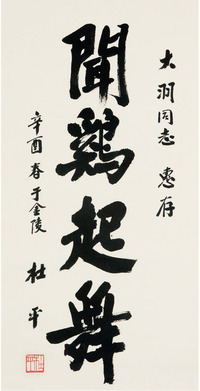 大洞同志 惠存
聞鷄起舞
辛酉春于金陵
杜平